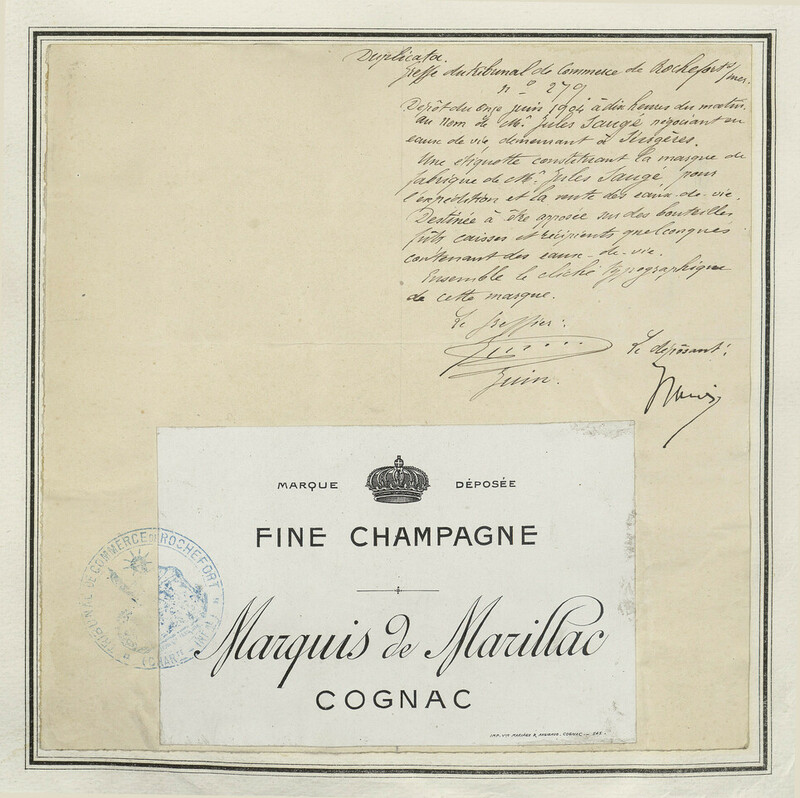 Duplicata.
Greffe du tribunal de Commerce de Rochefort s/mer.
n° 279
Dépôt du onze juin 1904 à dix heures du matin
au nom de Mr. Jules Saugé négociant en
eaux de vie, demeurant à Surgères.
Une étiquette constituant la marque de
fabrique de Mr. Jules Saugé pour
l'expédition et la vente des eaux-de-vie.
Destinée à être apposée sur des bouteilles
fûts caisses et récipients quelconques
contenant des eaux-de-vie.
Ensemble le cliché typographique
de cette marque.
Le Greffier:
Le déposant:
MARQUE DÉPOSÉE
FINE CHAMPAGNE
Marquis de Marillac
COGNAC
TRIBUNAL DE COMMERCE DE ROCHEFORT
(CHARTE INFRE)
COGNAC